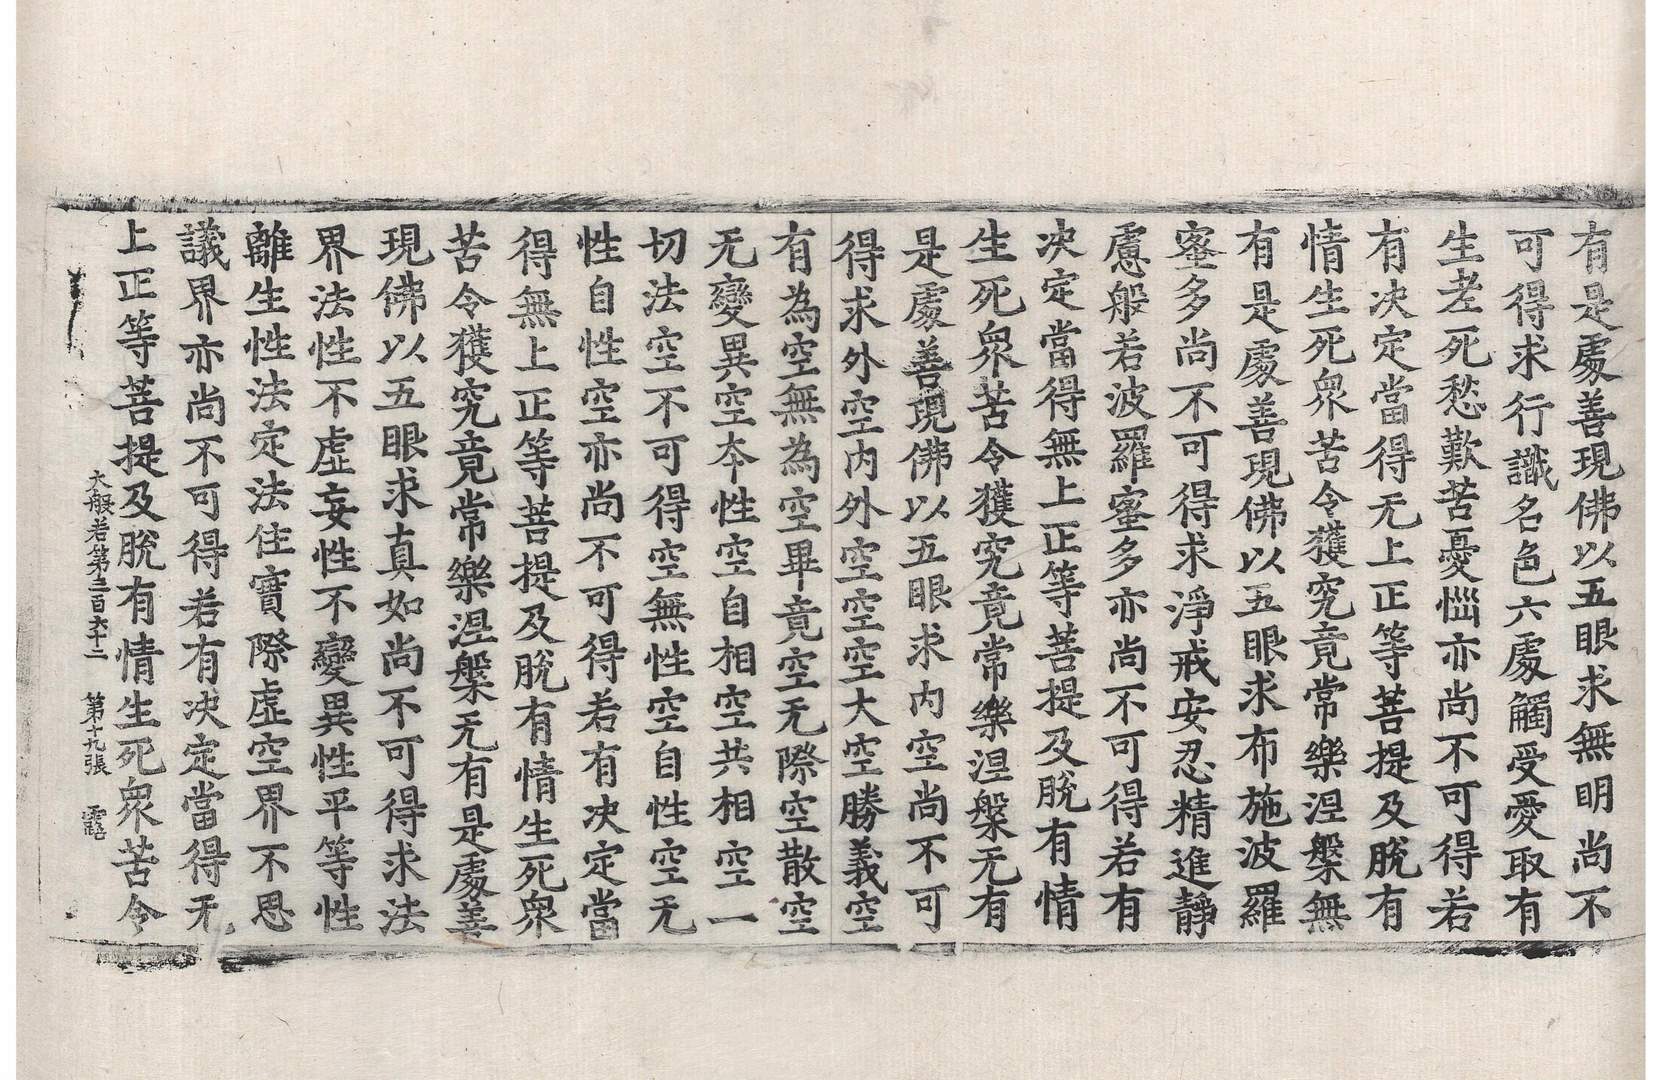 有是處善現佛以五眼求無明尚不
可得求行識名色六處觸受愛取有
生老死愁歎苦憂惱亦尚不可得若
有决定當得无上正等菩提及脫有
情生死衆苦令獲究竟常樂涅槃無
有是處善現佛以五眼求布施波羅
蜜多尚不可得求淨戒安忍精進靜
慮般若波羅蜜多亦尚不可得若有
决定當得無上正等菩提及脫有情
生死衆苦令獲究竟常樂涅槃无有
是處善現佛以五眼求内空尚不可
得求外空内外空空空大空勝義空
有為空無為空畢竟空无際空散空
无變異空本性空自相空共相空一
切法空不可得空無性空自性空无
性自性空亦尚不可得若有决定當
得無上正等菩提及脫有情生死衆
苦令獲究竟常樂涅槃无有是處善
現佛以五眼求真如尚不可得求法
界法性不虛妄性不變異性平等性
離生性法定法住實際虛空界不思
議界亦尚不可得若有决定當得无
上正等菩提及脫有情生死衆苦令
大般若第三百六十二 第十九張 露